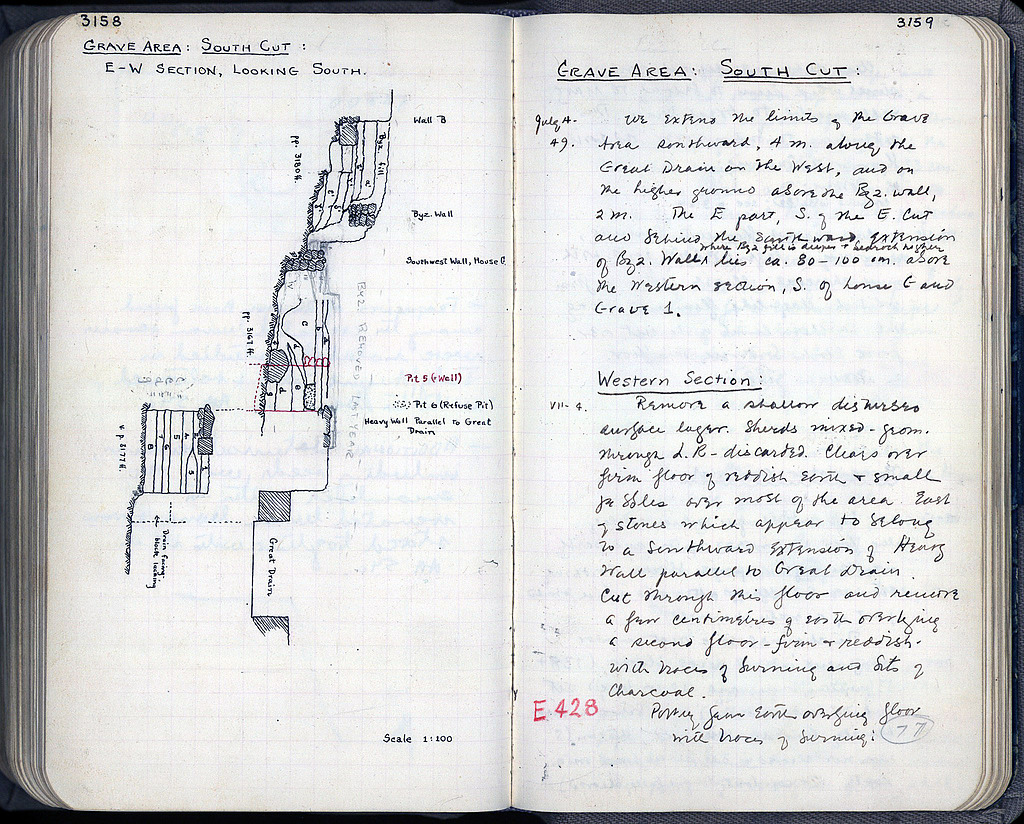 3158
GRAVE AREA: SOUTH CUT:
E-W SECTION, LOOKING SOUTH.
Wall B
pp. 3180 ff.
Byz. fill
Byz. Wall
Southwest Wall, House G.
BYZ. REMOVED LAST YEAR
pp. 3167 ff.
Pit 5 (=Well)
Pit 6 (Refuse Pit)
Heavy Wall Parallel to Great
Drain
v. p. 3177 ff.
Drain facing
block lacking
Great Drain
Scale 1:100
3159
GRAVE AREA: SOUTH CUT:
July 4. We extend the limits of the Grave
49. Area southward, 4 m. along the
Great Drain on the West, and on
the higher ground above the Byz. wall,
2 m. The E part, S. of the E. Cut
and behind the Southward extension
where Byz fill is deeper + bedrock higher
of Byz. Wall lies ca. 80-100 cm. above
the Western section, S. of House G and
Grave 1.
Western Section:
VII-4. Remove a shallow disturbed
surface layer. Sherds mixed-geom.
through L.R-discarded. Clears over
firm floor of reddish earth + small
pebbles over most of the area. East
of stones which appear to belong
to a Southward Extension of Heavy
Wall parallel to Great Drain.
Cut through this floor and remove
a few centimetres of earth overlying
a second floor-firm + reddish-
with traces of burning and bits of
charcoal.
E 428 Pottery from Earth overlying floor
with traces of burning:
77